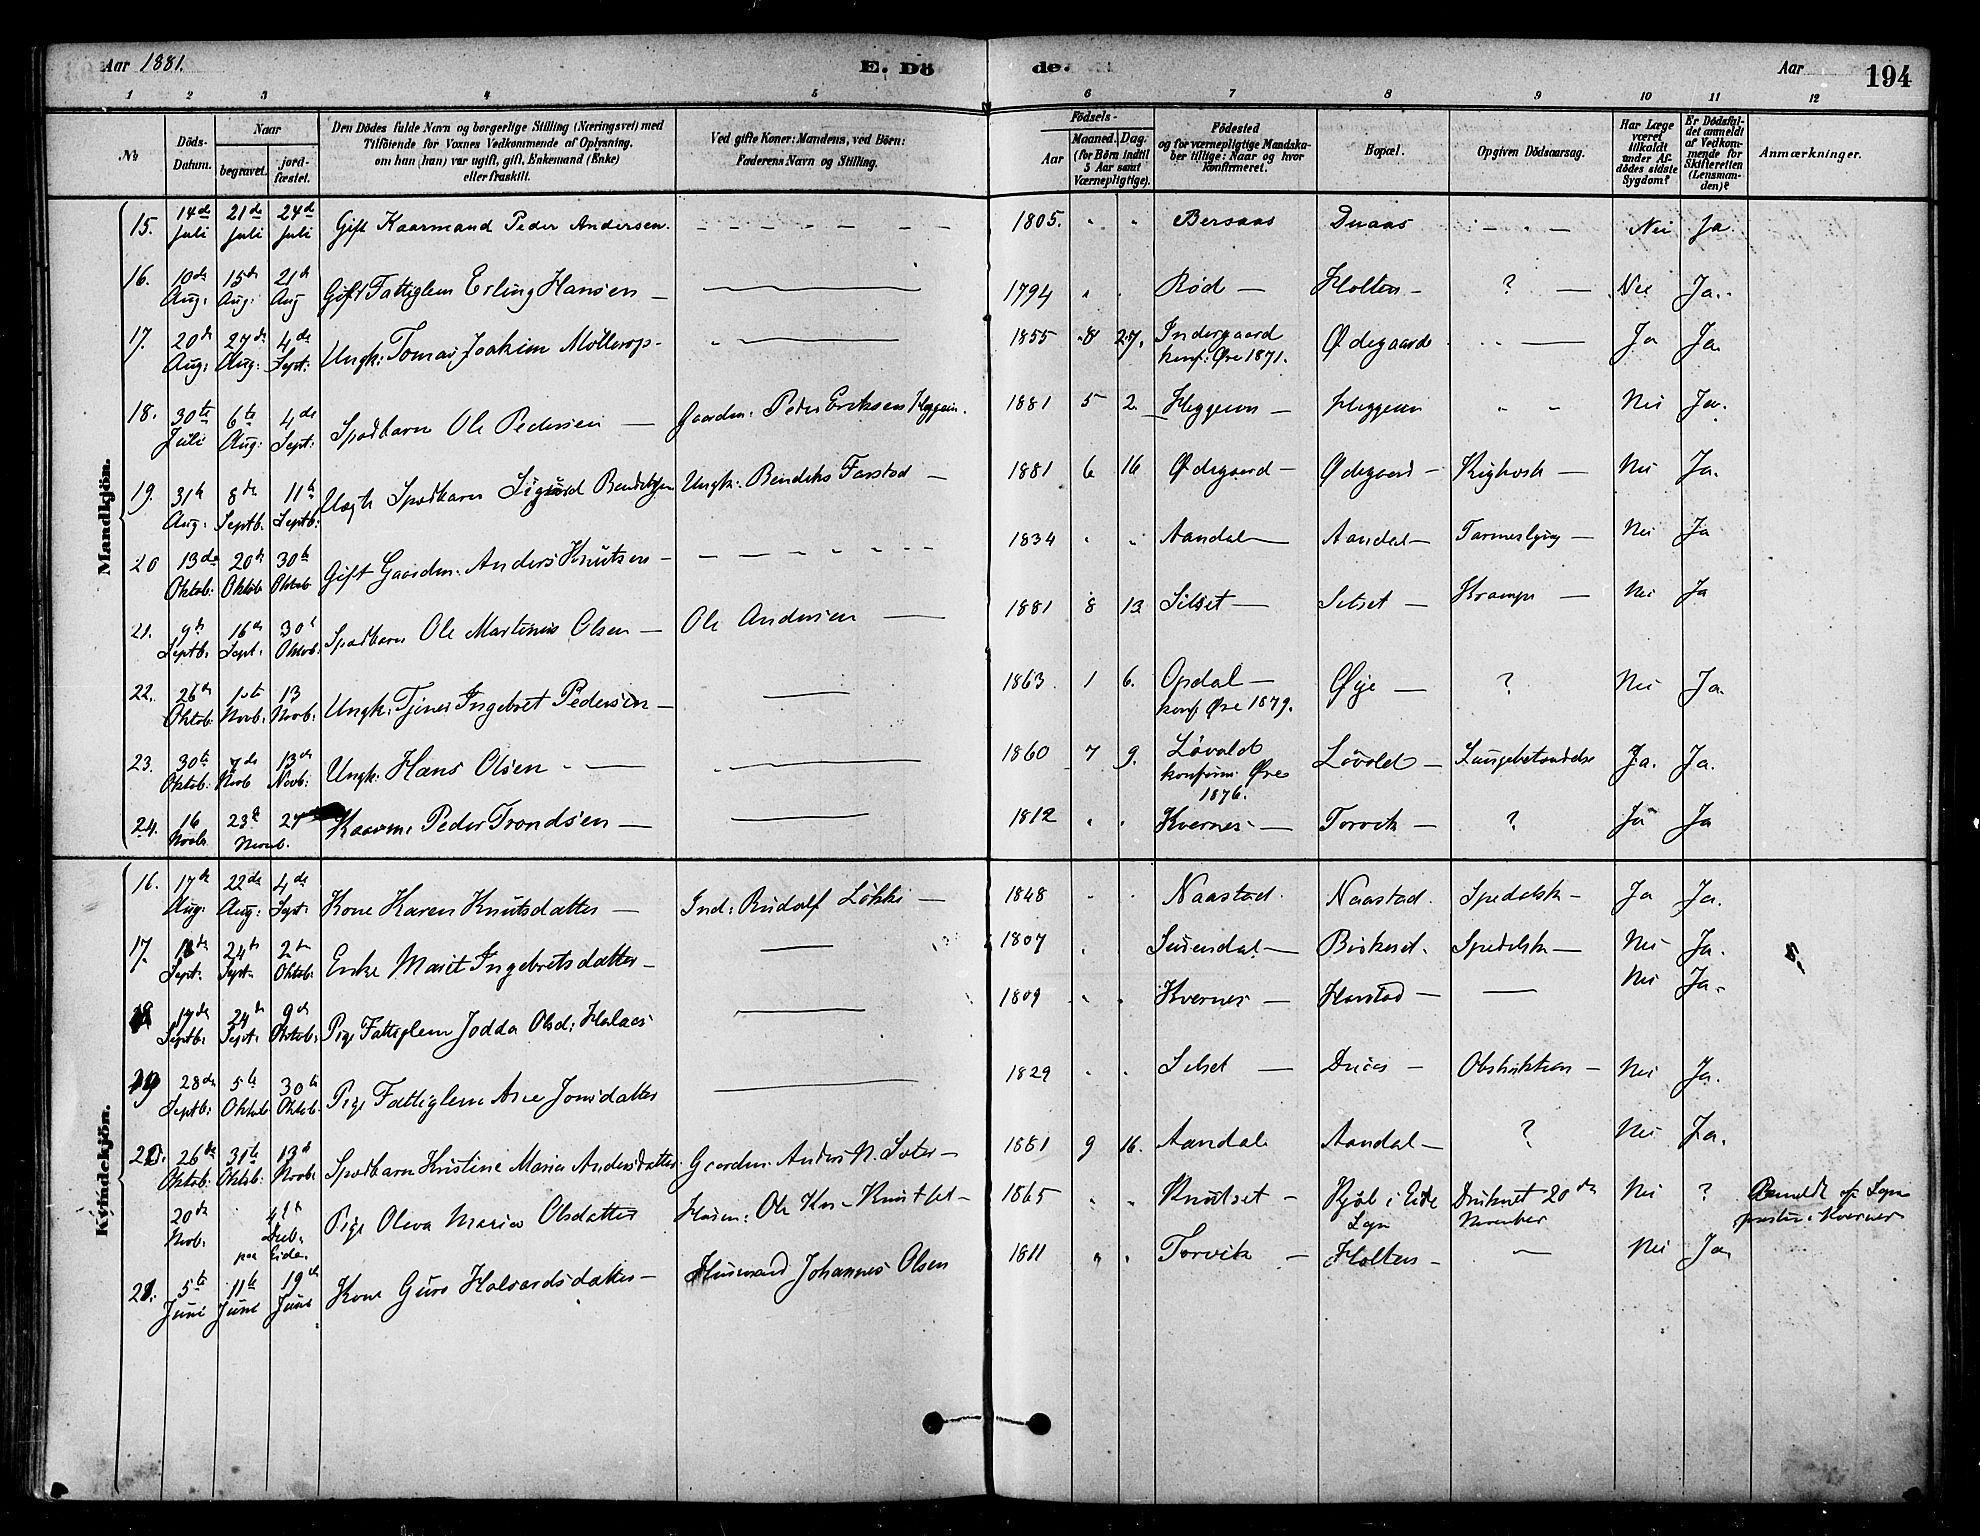 Aar 1881. E. Dö de. Aar 194
1 2 3 4 5 6 7 8 9 10 11 12
No. Döds-Datum. Naar begravet. jordfæstet. Den Dödes fulde Navn og borgerlige Stilling (Næringsvei) med Tilföiende for Voxnes Vedkommende af Oplysning, om han (hun) var ugift, gift, Enkemand (Enke) eller fraskilt. Ved gifte Koner: Mandens, ved Börn: Faderens Navn og Stilling. Födsels- Aar Maaned. Dag. (for Börn indtil 5 Aar samt Værnepligtige). Födested og for værnepligtige Mandskaber tillige: Naar og hvor konfirmeret. Bopæl. Opgiven Dödsaarsag. Har Læge været tilkaldt under Afdödes sidste Sygdom? Er Dödsfaldet anmeldt af Vedkommende for Skifteretten (Lensmanden)? Anmærkninger.
Mandkjön.
15. 14de Juli 21de Juli 24de Juli Gift Kaarmand Peder Andersen. 1805. " " Bersaas Duaas Nei Ja
16. 10de Aug: 15de Aug: 21de Aug Gift Fattiglem Erling Hansen 1794 " " Rød Holten ? Nei Ja.
17. 20de Aug: 27de Aug: 4de Sept: Ungk: Tomas Joakim Mollerop 1855 8 27. Indergaard konf: Øre 1871. Ødegaard Ja Ja.
18. 30te Juli 6te Aug: 4de Sept: Spædbarn Ole Pedersen Gaardm: Peder Eriksen Heggem. 1881 5 2 Heggem Heggem " " Nei Ja.
19. 31te Aug. 8de Septb. 11te Septb. Uægte Spædbarn Sigurd Bendiksen Ungk: Bendiks Farstad 1881 6 16 Ødegaard Ødegaard Kighoste Nei Ja.
20 13de Oktob. 20de Oktob 30te Oktob Gift Gaardm. Anders Knutsen 1834 " " Aandal Aandal Tarmeslyng Nei Ja
21. 9de Septb. 16de Sept. 30te Oktob. Spædbarn Ole Martinus Olsen Ole Andersen 1881 8 13 Silset Silset Krampe Nei Ja
22. 26de Oktob 1ste Novb. 13 Novb. Ungk: Tjener Ingebret Pedersen 1863. 1 6. Opdal konf. Øre 1879. Øye ? Nei Ja.
23. 30te Oktob. 7de Novb 13de Novb. Ungk: Hans Olsen 1860 7 9. Løvold konfirm: Øre 1876. Løvold Lungebetændelse Ja. Ja.
24. 16 Novb. 23de 27 Novemb. Kaarm. Peder Trondsen 1812 " " Kvernes Torvik ? Ja Ja
Kvindekjön.
16. 17de Aug: 22de Aug: 4de Sept. Kone Karen Knutsdatter Ind: Rudolf Løkke 1848 " " Naastad. Naastad. Spedalsk Ja Ja.
17. Sept. 24de Sept. 2den Oktob. Enke Marit Ingebretsdatter 1807 " Surendal Birkeset. Spedalsk Nei Ja.
18 17de Septb. 24de Sept. 9de Oktob. Pige Fattiglem Jodda Olsd: Halaas 1809 " " Kvernes Harstad Nei Ja.
19 28de Septb. 5te Oktob 30te Oktob. Pige Fattiglem Ane Jonsdatter 1829 " " Silset Duaas Obstruktion Nei Ja.
20. 26de Oktob. 31te Oktob. 13de Novb. Spædbarn Kristine Maria Andersdatter. Gaardm. Anders N. Sæter 1881 9 16. Aandal Aandal ? Nei Ja.
20de Novb. 4de Decb. paa Eide. Pige Oleva Maria Olsdatter Husm: Ole Kn. Knutset 1865 " " Knutset i Eide Sogn Druknet 20de November Nei ? Anmeldt af Sogne præsten i Kvernes
21. 5te Juni 11te Juni 19de Juni Kone Guro Halvardsdatter Husmand Johannes Olsen 1811 " " Torvik Holten Nei Ja.